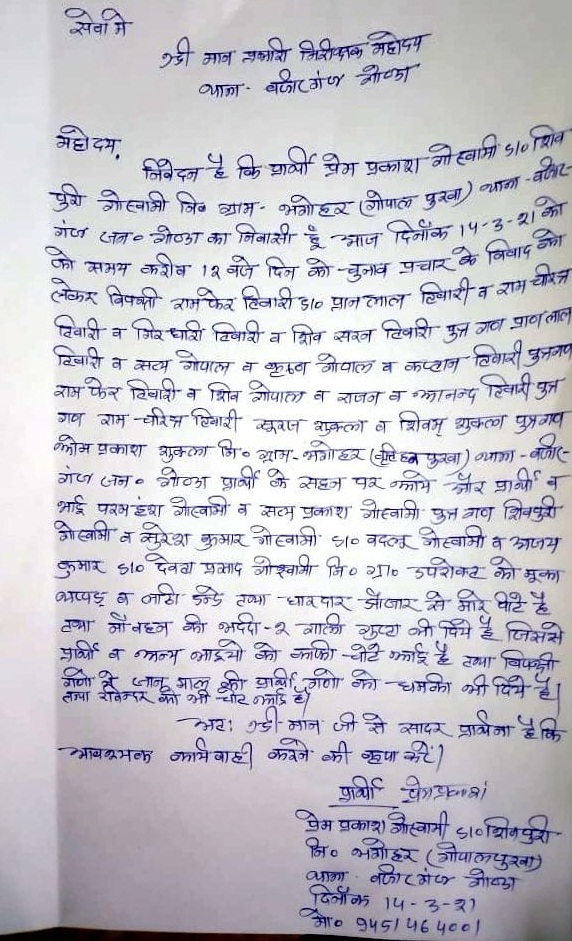 सेवा मे
श्री मान प्रभारी निरीक्षक महोदय
थाना - वजीरगंज गोण्डा
महोदय,
निवेदन है कि प्रार्थी प्रेम प्रकाश गोस्वामी S/O शिव
पुरी गोस्वामी नि० ग्राम - भगोहर (गोपाल पुरवा) थाना - वजीर-
गंज जन० गोण्डा का निवासी हूँ आज दिनाँक 14-3-21 को
को समय करीब 12 वजे दिन को चुनाव प्रचार के विवाद को
लेकर विपक्षी राम फेर तिवारी S/O प्रान लाल तिवारी व राम चरित्र
तिवारी व गिरधारी तिवारी व शिव सरन तिवारी पुत्र गण प्राण लाल
तिवारी व सत्य गोपाल व कृष्ण गोपाल व कप्तान तिवारी पुत्रगण
राम फेर तिवारी व शिव गोपाल व राजन व आनन्द तिवारी पुत्र
गण राम चरित्र तिवारी सूरज शुक्ला व शिवम् शुक्ला पुत्रगण
ओम प्रकाश शुक्ला नि० ग्राम - भगोहर पुरवा) थाना - वजीर-
गंज जन० गोण्डा प्रार्थी के सहन पर आये और प्रार्थी व
भाई परमहंश गोस्वामी व सत्य प्रकाश गोस्वामी पुत्र गण शिवपुरी
गोस्वामी व सुरेश कुमार गोस्वामी S/O वदलू गोस्वामी व अजय
कुमार S/O देवता प्रसाद गोश्वामी नि० ग्रा० उपरोक्ट को मुका
थप्पड़ व लाठी डन्डे तथा धारदार औजार से मारे पीटे है
तथा माँ वहन की भद्दी-2 गाली गुप्ता भी दिये है जिससे
प्रार्थी व अन्य भाइयो को काफी चोटे आई है तथा विपक्षी
गणो ने जान माल की प्रार्थी गणो को धमकी भी दिये है।
तथा रविन्दर को भी चोट आई है।
अत: श्री मान जी से सादर प्रार्थना है कि
आवश्यक कार्यवाही करने की कृपा करें।
प्रार्थी प्रेमप्रकाश
प्रेम प्रकाश गोस्वामी S/O शिवपुरी
नि० भगोहर (गोपालपुरवा)
थाना - वजीरगंज गोण्डा
दिनाँक 14-3-21
मो० 9451464001